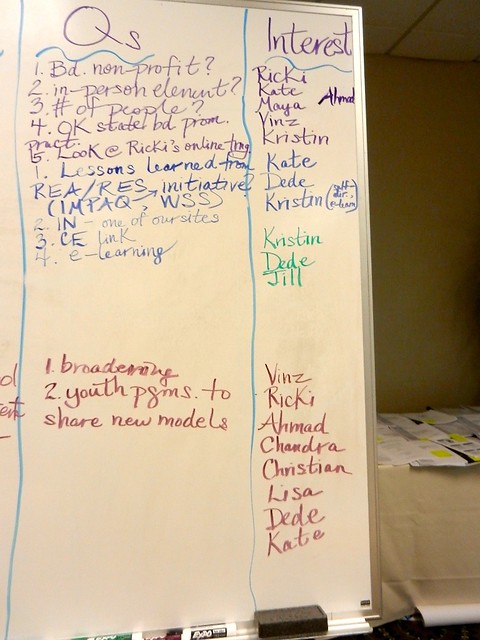 Qs
1. Bd. non-profit?
2. in-person element?
3. # of people?
4. OK state bd prom.
pract.
5. Look @ Ricki's online trng
1. Lessons learned from
REA/RES initiative?
(IMPAQ, WSS)
2. IN - one of our sites
3. CE link
4. e-learning
1. broadening
2. youth pgms. to
share new models
Interest
Ricki
Kate
Maya Ahmad
Vinz
Kristin
Kate
Dede
Kristin (self-
dir. e-learn)
Kristin
Dede
Jill
Vinz
Ricki
Ahmad
Chandra
Christian
Lisa
Dede
Kate
EXPO